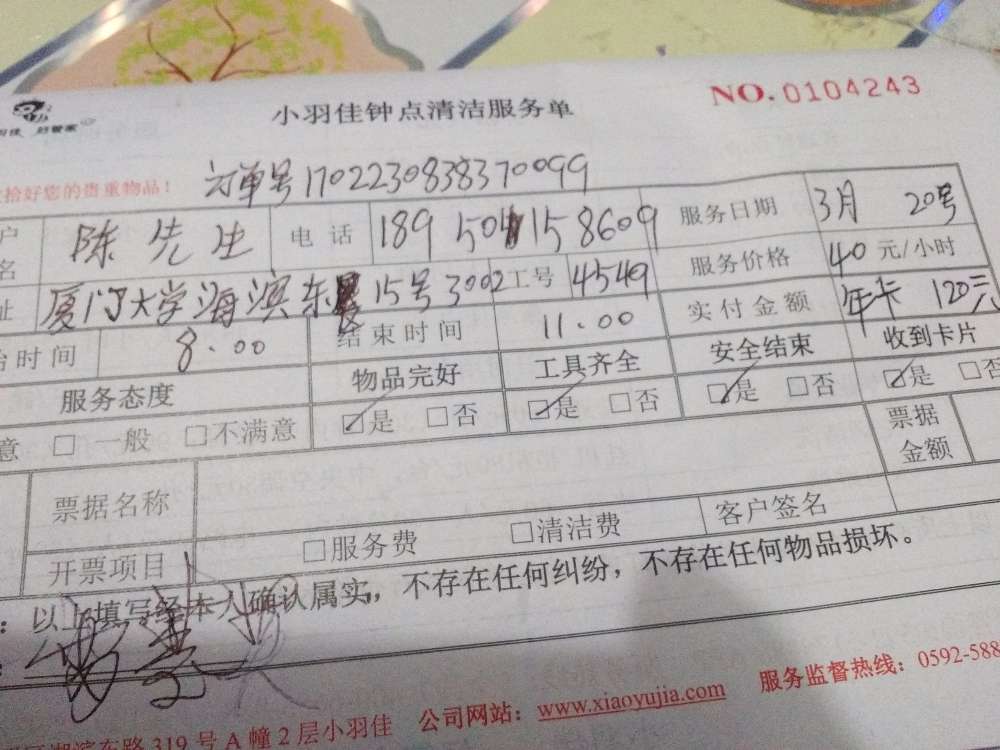 小羽佳钟点清洁服务单
NO. 0104243
好管家
拾好您的贵重物品！
订单号170223083837 0099
户名 陈先生 电话 189 50 158609 服务日期 3月 20号
址 厦门大学海滨东 15号3002 工号 4549 服务价格 40 元/小时
始时间 8.00 结束时间 11.00 实付金额 年卡 120元
服务态度 物品完好 工具齐全 安全结束 收到卡片
意 □ 一般 □不满意 ☑是 □否 ☑是 □否 ☑是 □否 ☑是 □否
票据名称 票据金额
开票项目 □服务费 □清洁费 客户签名
：以上填写经本人确认属实，不存在任何纠纷，不存在任何物品损坏。
服务监督热线：0592-588
东路319号A幢2层小羽佳 公司网站：www.xiaoyujia.com